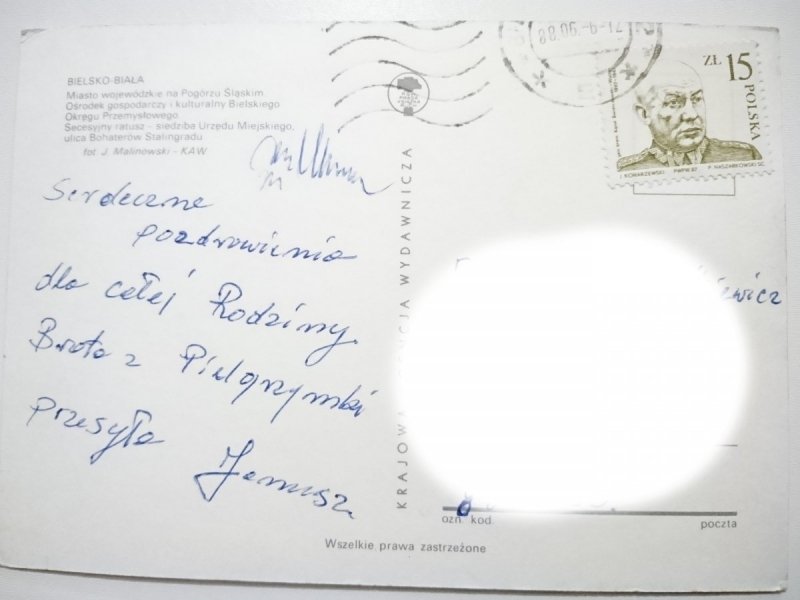 BIELSKO-BIAŁA
Miasto wojewódzkie na Pogórzu Śląskim.
Ośrodek gospodarczy i kulturalny Bielskiego
Okręgu Przemysłowego.
Secesyjny ratusz - siedziba Urzędu Miejskiego,
ulica Bohaterów Stalingradu
fot. J. Malinowski - KAW
Serdeczne
pozdrowienia
dla całej Rodziny
Brata z Pielgrzymki
przesyła
Janusz
KRAJOWA AGENCJA WYDAWNICZA
ZŁ 15
POLSKA
PWPW 87
ewicz
ozn. kod
poczta
Wszelkie prawa zastrzeżone